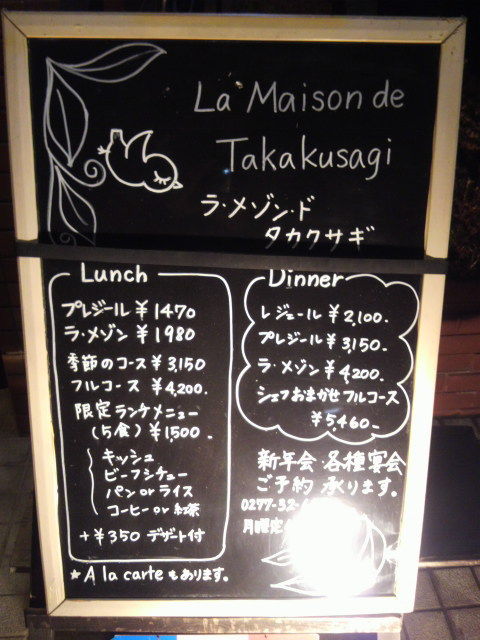 La Maison de
Takakusagi
ラ・メゾン・ド
タカクサギ
Lunch
プレジール ¥1470
ラ・メゾン ¥1980
季節のコース ¥3,150
フルコース ¥4,200.
限定ランチメニュー
(5食) ¥1,500.
キッシュ
ビーフシチュー
パン or ライス
コーヒー or 紅茶
+¥350 デザート付
★A la carteもあります。
Dinner
レジェール ¥2,100.
プレジール ¥3,150.
ラ・メゾン ¥4,200.
シェフおまかせフルコース
¥5,460.
新年会 各種宴会
ご予約 承ります。
0277-52-
月曜定